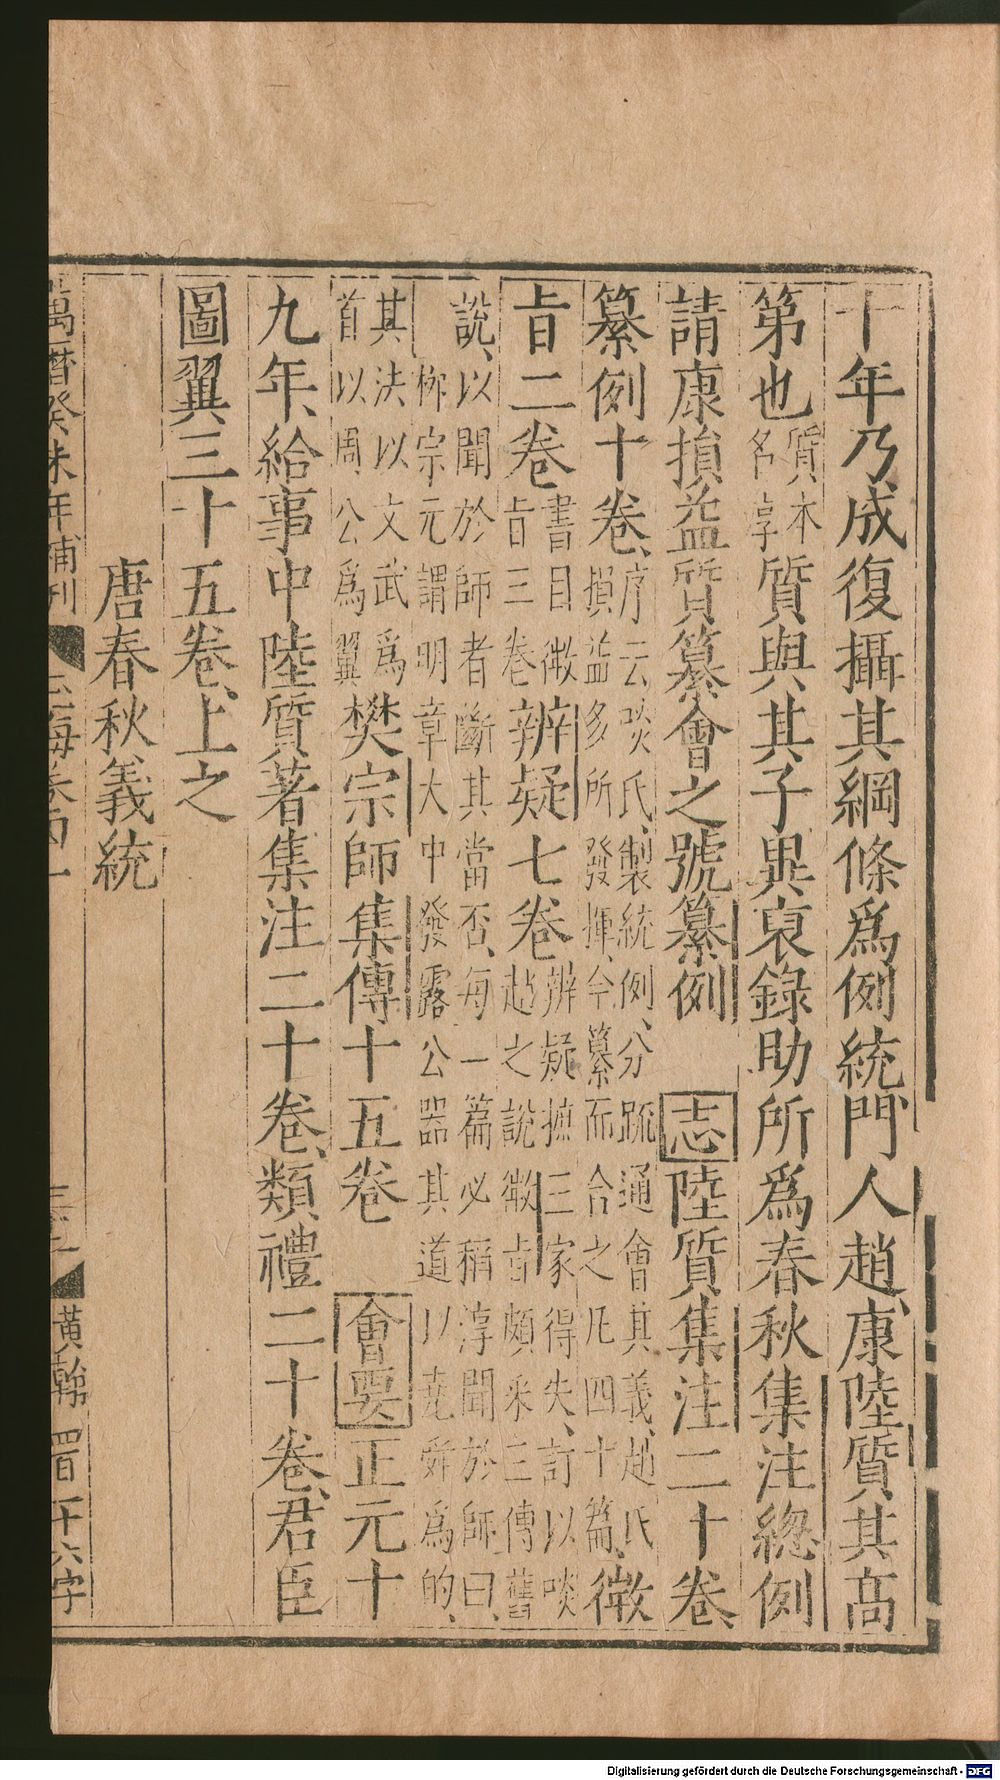 十年乃成復攝其綱條爲例統門人趙康陸質其高
第也質本名淳質與其子異裒錄助所爲春秋集注總例
請康損益質纂會之號纂例 志陸質集注二十卷
纂例十卷序云啖氏製統例分䟽通會其義趙氏損益多所發揮今纂而合之凡四十篇徴
㫖二卷書目微㫖三卷辨疑七卷辨疑摭三家得失訂以啖趙之說微㫖頗采三傳舊
說以聞於師者斷其當否每一篇必稱淳聞於師曰
柳宗元謂明章大中發露公器其道以堯舜爲的
其法以文武爲首以周公爲翼樊宗師集傳十五卷 會要正元十
九年給事中陸質著集注二十卷類禮二十卷君臣
圖翼三十五卷上之
唐春秋義統
萬曆癸未年補刊 黃
Digitalisierung gefördert durch die Deutsche Forschungsgemeinschaft - DFG